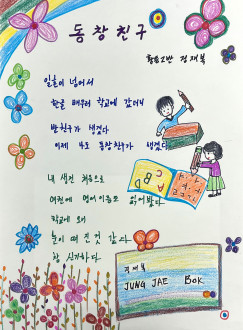 동창친구
황금2반 정재복
일흔이 넘어서
한글 배우러 학교에 갔더니
반친구가 생겼다
이제 나도 동창친구가 생겼다
내 생전 처음으로
여권에 영어이름도 읽어봤다
학교에 오니
눈이 떠 진 것 같다
참 신기하다
A B C
정재복
JUNG JAE BOK